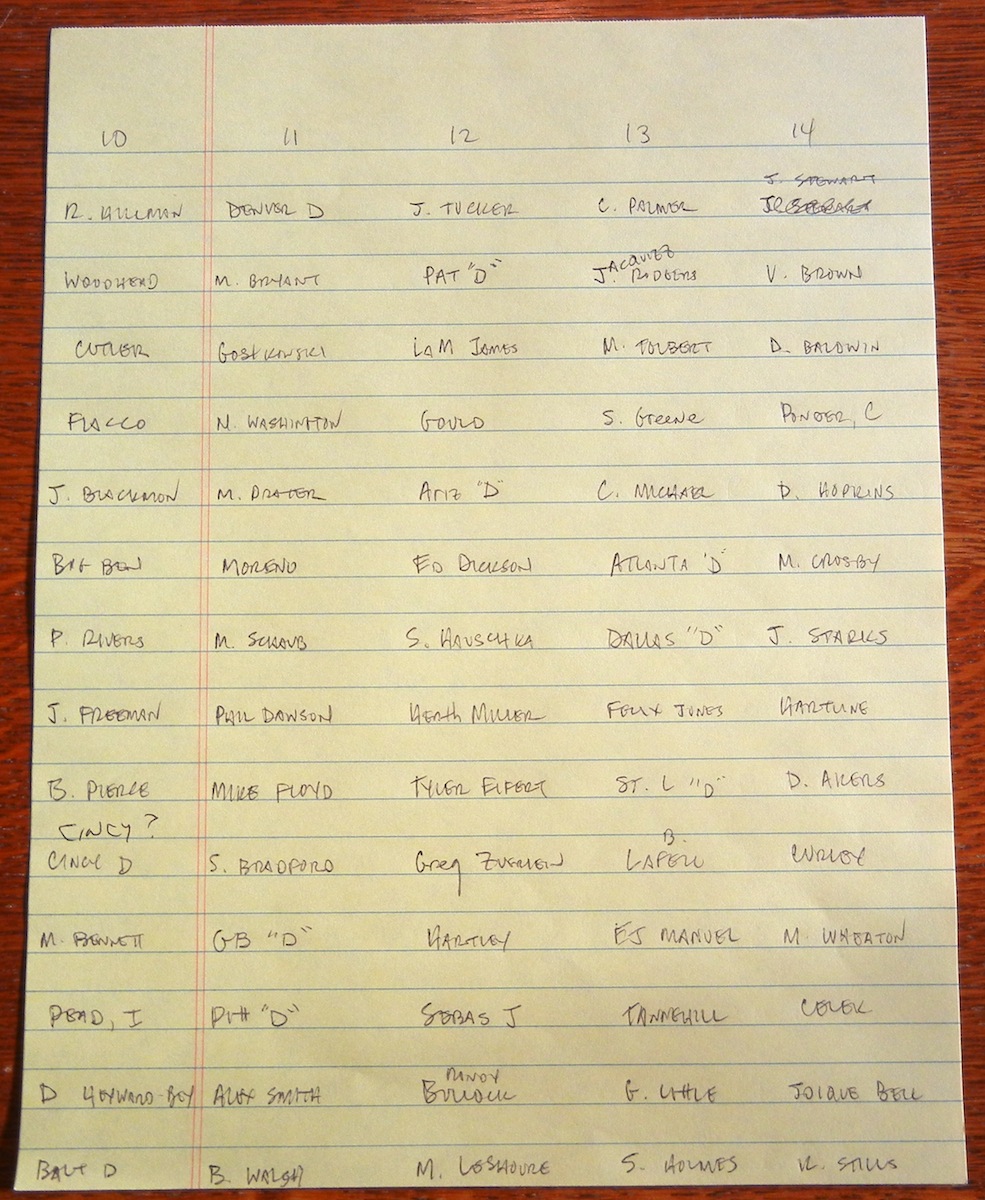 10 11 12 13 14
J. STEWART
R. HILLMAN DENVER D J. TUCKER C. PALMER
WOODHEAD M. BRYANT PAT "D" JACQUIZZ RODGERS V. BROWN
CUTLER GOSTKOWSKI LaM JAMES M. TOLBERT D. BALDWIN
FLACCO N. WASHINGTON GOULD S. Greene PONDER, C
J. BLACKMON M. PRATER Ariz "D" C. MICHAEL D. HOPKINS
BIG BEN MORENO ED DICKSON ATLANTA "D" M. CROSBY
P. RIVERS M. SCHAUB S. HAUSCHKA DALLAS "D" J. STARKS
J. FREEMAN PHIL DAWSON HEATH MILLER FELIX JONES HARTLINE
B. PIERCE MIKE FLOYD TYLER EIFERT ST. L "D" D. AKERS
CINCY?
CINCY D S. BRADFORD Greg ZUERLEIN B. LAFELL
M. BENNETT GB "D" HARTLEY EJ MANUEL M. WHEATON
PEAD, I Pitt "D" SEBAS J TANNEHILL CELEK
D HEYWARD-BEY ALEX SMITH RANDY BULLOCK G. LITTLE JOIQUE BELL
BALT D B. WALSH M. LESHOURE S. HOLMES K. STILLS